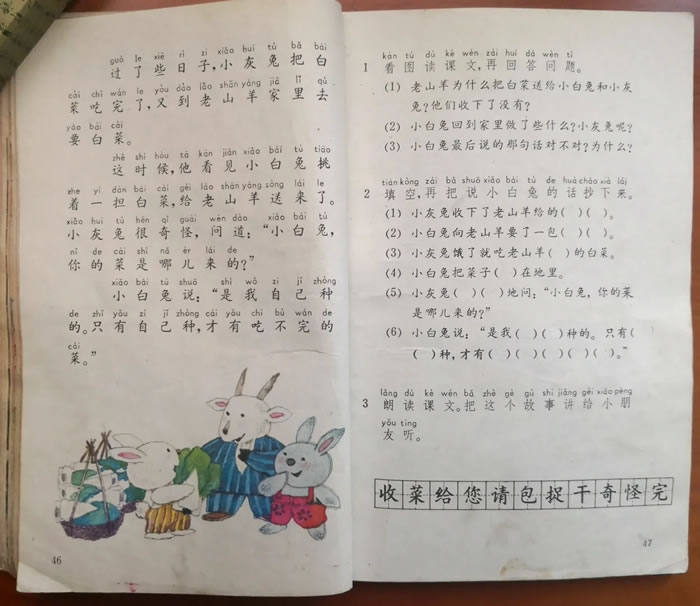 guò le xiē rì zi xiǎo huī tù bǎ bái
过了些日子，小灰兔把白
cài chī wán le yòu dào lǎo shān yáng jiā lǐ qù
菜吃完了，又到老山羊家里去
yào bái cài
要白菜。
zhè shí hòu tā kàn jiàn xiǎo bái tù tiāo
这时候，他看见小白兔挑
zhe yí dàn bái cài gěi lǎo shān yáng sòng lái le
着一担白菜，给老山羊送来了。
xiǎo huī tù hěn qí guài wèn dào xiǎo bái tù
小灰兔很奇怪，问道：“小白兔，
nǐ de cài shì nǎ ér lái de
你的菜是哪儿来的？”
xiǎo bái tù shuō shì wǒ zì jǐ zhòng
小白兔说：“是我自己种
de zhǐ yǒu zì jǐ zhòng cái yǒu chī bù wán de
的。只有自己种，才有吃不完的
cài
菜。”
46
kàn tú dú kè wén zài huí dá wèn tí
1 看图读课文，再回答问题。
(1) 老山羊为什么把白菜送给小白兔和小灰
兔？他们收下了没有？
(2) 小白兔回到家里做了些什么？小灰兔呢？
(3) 小白兔最后说的那句话对不对？为什么？
tián kòng zài bǎ shuō xiǎo bái tù de huà chāo xià lái
2 填空，再把说小白兔的话抄下来。
(1) 小灰兔收下了老山羊给的( )( )。
(2) 小白兔向老山羊要了一包( )( )。
(3) 小灰兔饿了就吃老山羊( )的白菜。
(4) 小白兔把菜子( )在地里。
(5) 小灰兔( )( )地问：“小白兔，你的菜
是哪儿来的？”
(6) 小白兔说：“是我( )( )种的。只有( )
( )种，才有( )( )( )( )( )。”
lǎng dú kè wén bǎ zhè gè gù shi jiǎng gěi xiǎo péng
3 朗读课文。把这个故事讲给小朋
yǒu tīng
友听。
收菜给您请包捉干奇怪完
47